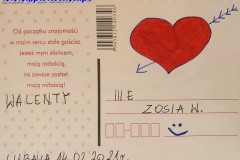 Od początku znajomości
w moim sercu stale gościsz.
Jesteś mym słońcem,
moją radością,
na zawsze zostań
moją miłością!
WALENTY
III E
ZOSIA W.
LUBAWA 14.02.2021r.